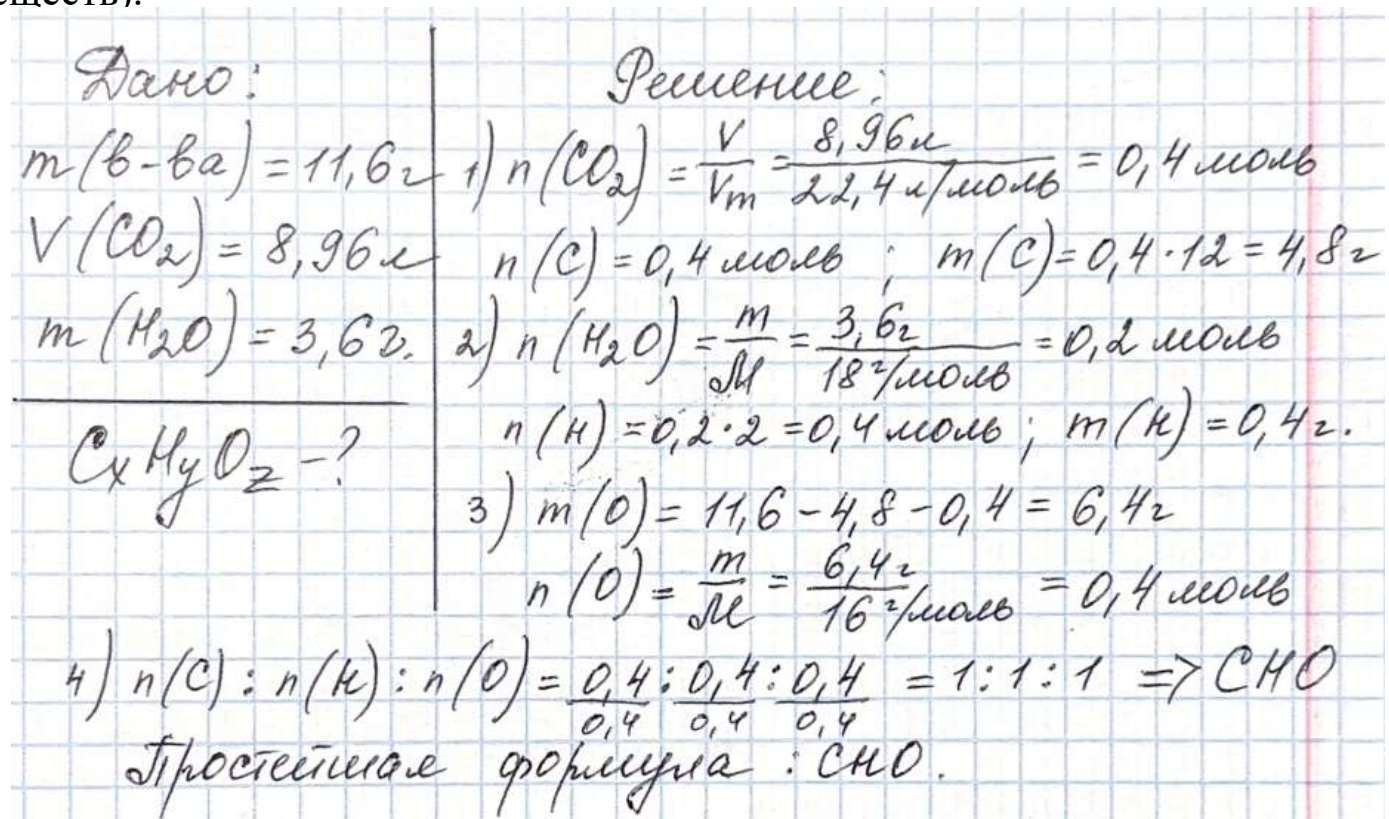 еществ).
Дано:
m(в-ва) = 11,6г
V(CO₂) = 8,96л
m(H₂O) = 3,6г.
CₓHᵧO_z - ?
Решение:
1) n(CO₂) = V/Vm = 8,96л/22,4 л/моль = 0,4 моль
n(C) = 0,4 моль ; m(C) = 0,4·12 = 4,8г
2) n(H₂O) = m/M = 3,6г/18 г/моль = 0,2 моль
n(H) = 0,2·2 = 0,4 моль ; m(H) = 0,4г.
3) m(O) = 11,6 - 4,8 - 0,4 = 6,4г
n(O) = m/M = 6,4г/16 г/моль = 0,4 моль
4) n(C) : n(H) : n(O) = 0,4/0,4 : 0,4/0,4 : 0,4/0,4 = 1:1:1 => CHO
Простейшая формула : CHO.